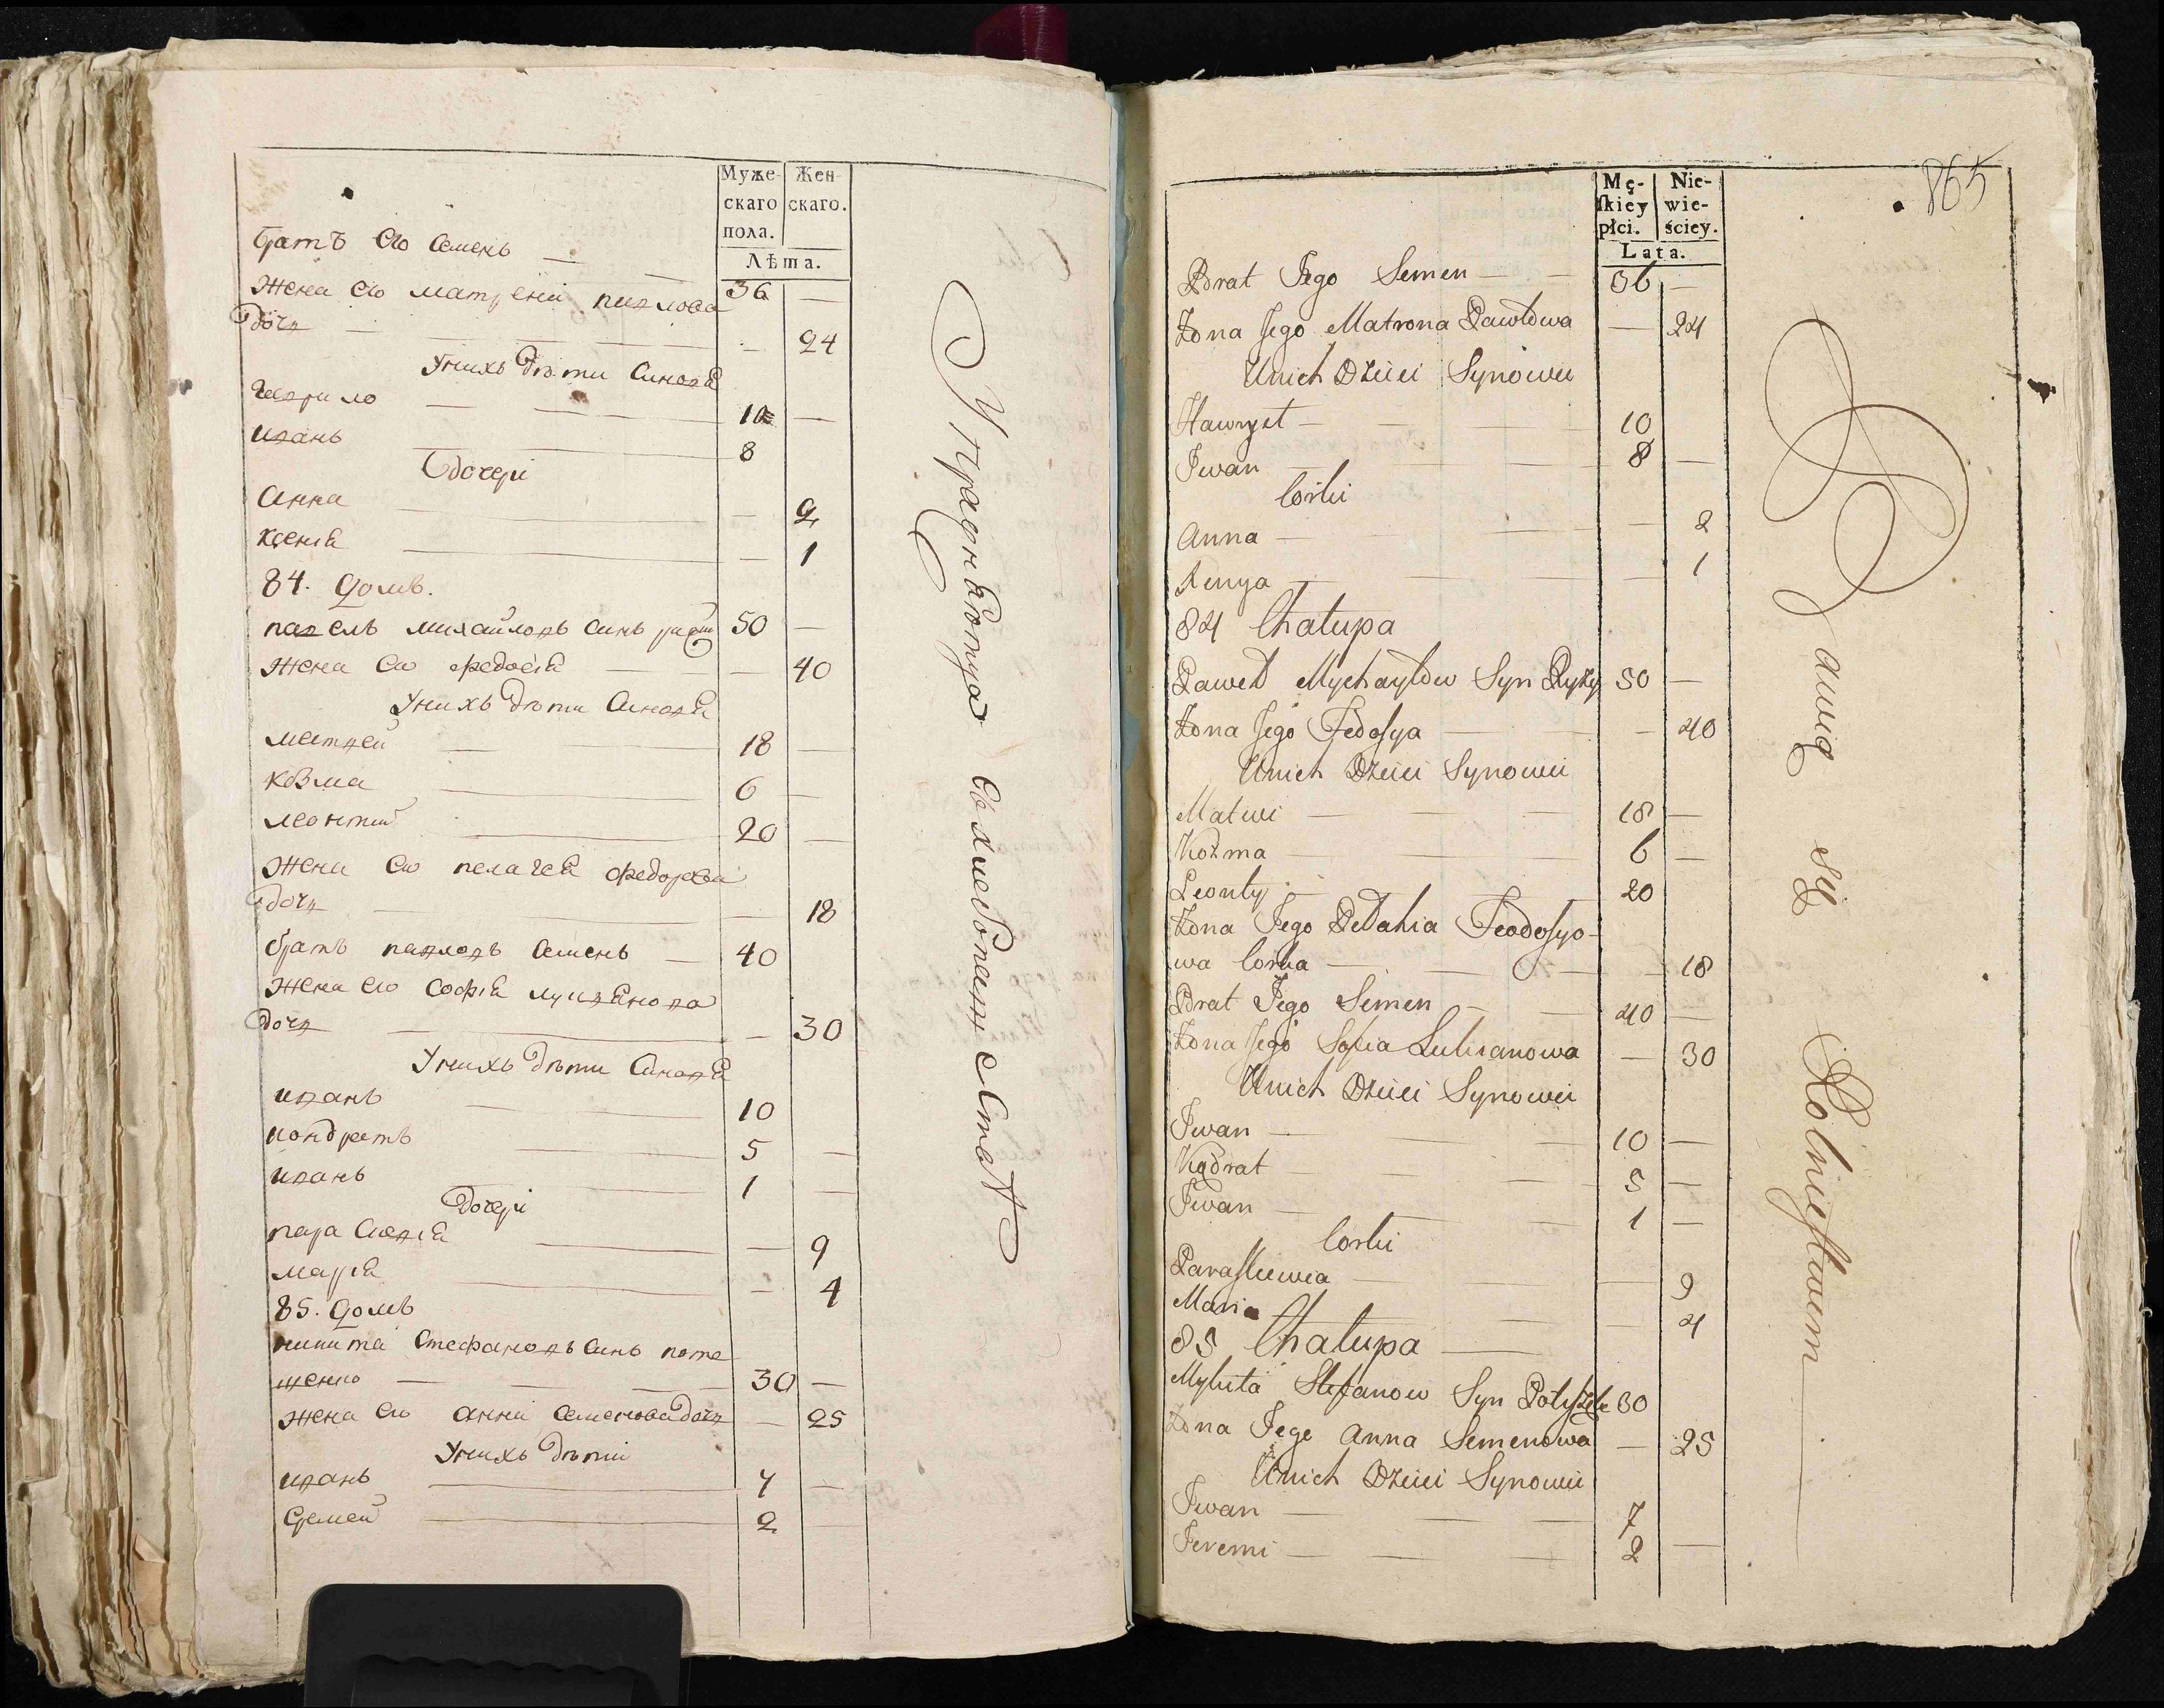 Муже-
скаго
пола.
Жен-
скаго.
Лѣта.
братъ его Семенъ — —
36 —
жена его матрена павлова
дочь — — — 24
Унихъ дѣти Синовя
гаврило — — 10 —
иванъ — 8
дочери
Анна — — 2
ксенія — — 1
84. домъ.
павелъ михайловъ синъ 50 —
жена его федосія — — 40
Унихъ дѣти Синовя
матвей — 18 —
козма — 6 —
леонтий — 20 —
жена его пелагея федорова
дочь — — — 18
братъ павловъ Семенъ — 40
жена его софія лукянова
дочь — — — 30
Унихъ дѣти Синовя
иванъ — — 10
кондратъ — 5 —
иванъ — 1 —
дочери
параскевія — — 9
марія — — 4
85. домъ
никита Стефановъ Синъ поте
шенко — — — 30 —
жена его анна Семенова дочь — 25
Унихъ дѣти
иванъ — 7 —
Еремей — 2 —
хлебопашество
865
Mę-
ſkiey
płci.
Nie-
wie-
ściey.
Lata.
Brat Jego Semen — — 36 —
Żona Jego Matrona Pawłowa — 24
Unich Dzieci Synowie
Hawrył — — — 10
Iwan — — — 8 —
Corki
Anna — — — — 2
Xenya — — — — 1
84 Chałupa
Paweł Mychayłow Syn Ryży 50 —
Żona Jego Fedosya — — — 40
Unich Dzieci Synowie
Matwi — — — 18 —
Kozma — — 6 —
Leonty — 20
Żona Jego Pełahia Feodosyo-
wa Corka — — — — 18
Brat Jego Semen — — 40 —
Żona Jego Sofia Lukianowa — 30
Unich Dzieci Synowie
Iwan — — — 10 —
Kądrat — — — 5 —
Iwan — — — 1 —
Corki
Paraskiewia — — — 9
Maria — — 4
85 Chałupa —
Mykita Stefanow Syn 30
Żona Jego Anna Semenowa — 25
Unich Dzieci Synowie
Iwan — — — 7
Jeremi — — — 2 —
Bawią się Rolnictwem